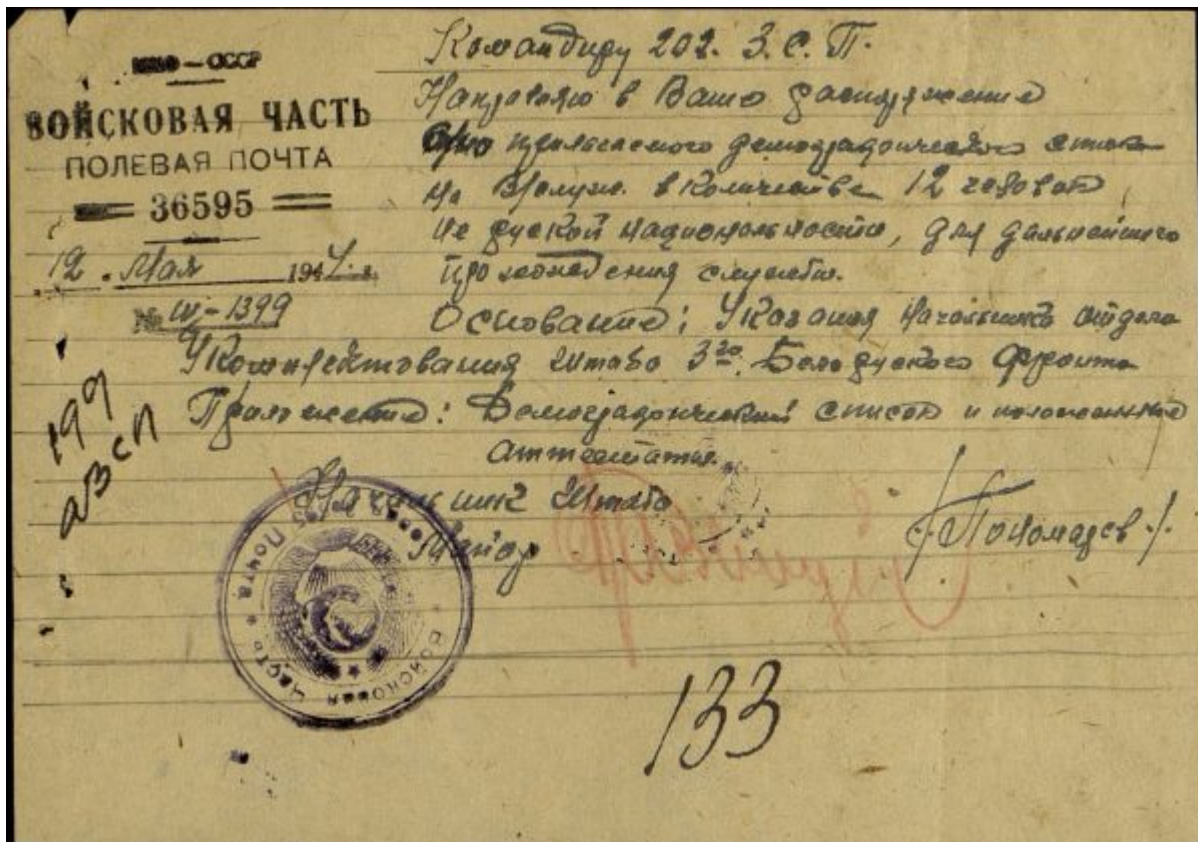 НКО – СССР
ВОЙСКОВАЯ ЧАСТЬ
ПОЛЕВАЯ ПОЧТА
36595
12. Мая 1944 г.
№ IV-1399
Командиру 202. З. С. П.
Направляю в Ваше распоряжение
демографического списка
на в количестве 12 человек
не руской национальности, для дальнейшего
прохождения службы.
Основание: Указания Начальника отдела
Укомплектования Штаба 3го Белоруского Фронта
Приложение: Демографический список и
аттестаты.
Начальник Штаба
Майор /Пономарев./
199
АЗСП
Войсковая Часть Полевая Почта
133